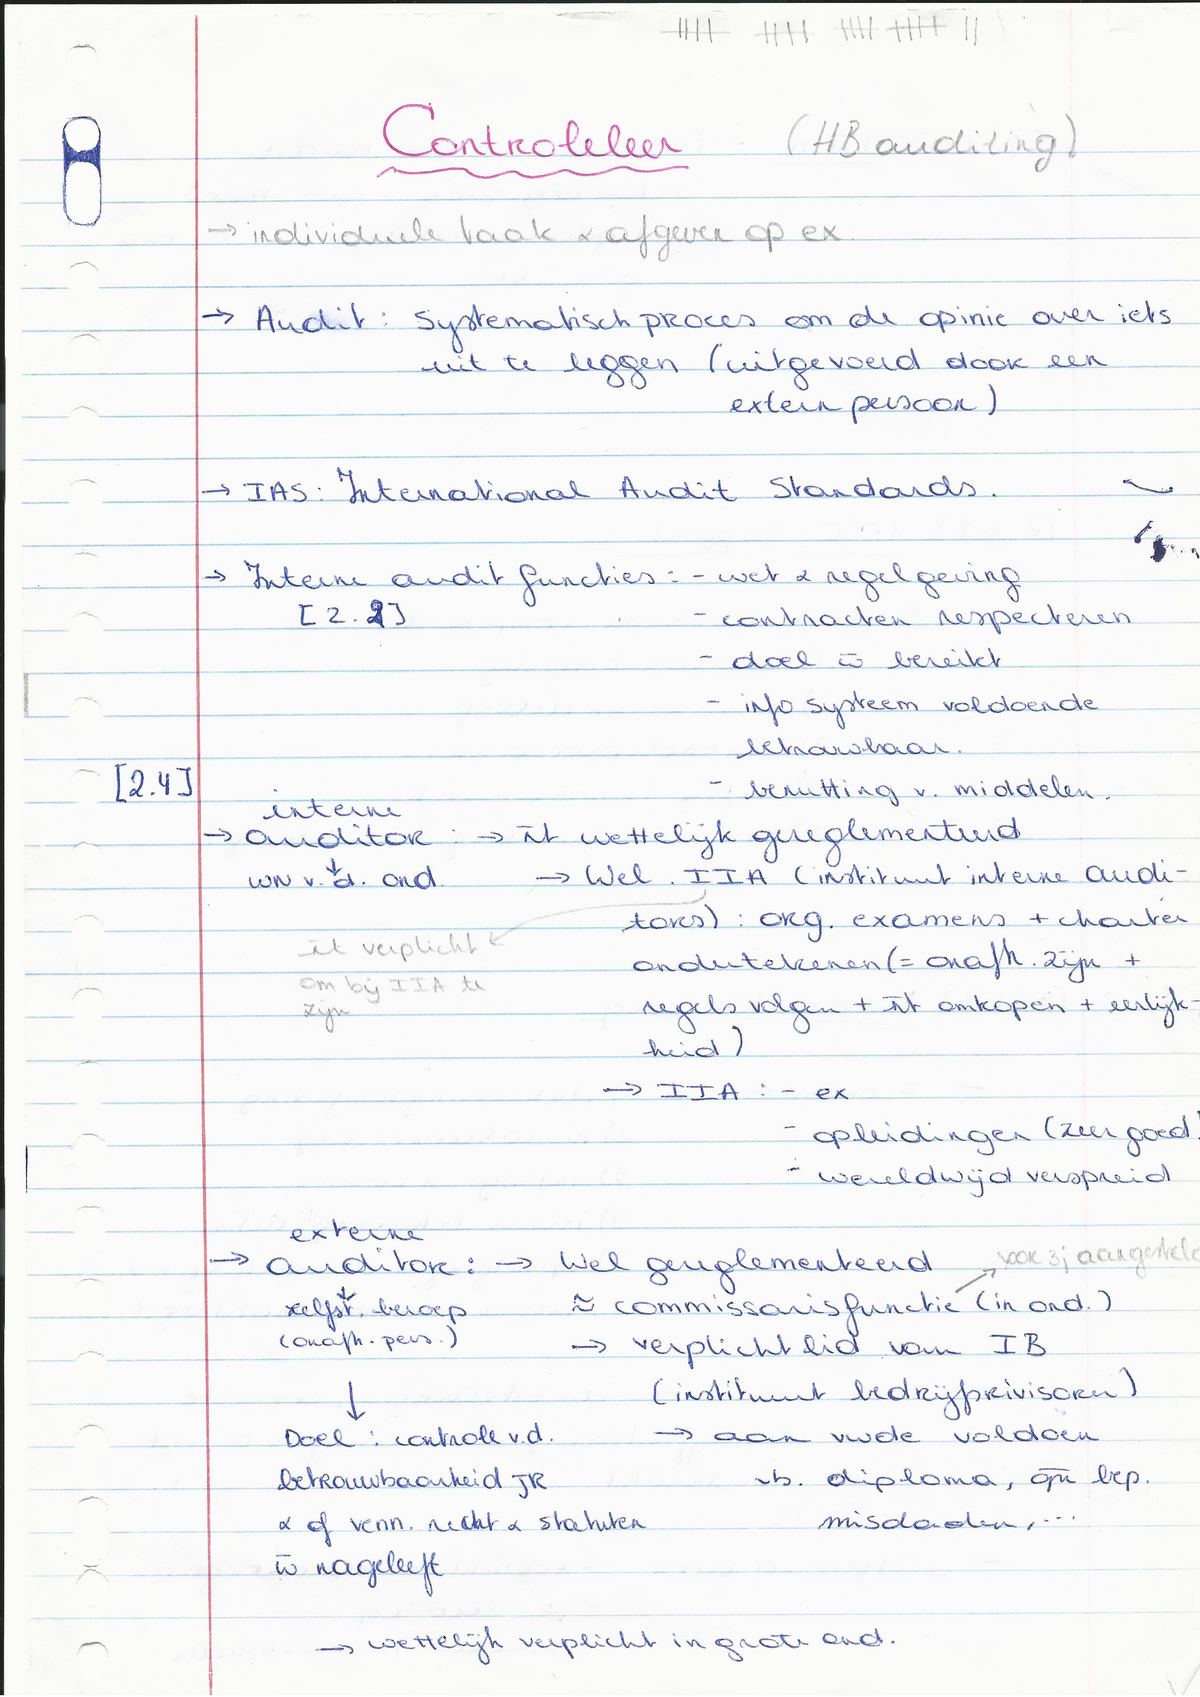 Controleleer (HB auditing)
→ individuele taak & afgeven op ex
→ Audit: Systematisch proces om de opinie over iets
uit te leggen (uitgevoerd door een
extern persoon)
→ IAS: International Audit Standards.
→ Interne audit functies: - wet & regelgeving
[2.2] - contracten respecteren
- doel w̄ bereikt
- info systeem voldoende
betrouwbaar.
[2.4] - benutting v. middelen.
interne
→ auditor: → n̄t wettelijk gereglementeerd
↓
WN v. d. ond. → Wel. IIA (instituut interne audi-
tors): org. examens + charter
n̄t verplicht
ondertekenen (= onafh. zijn +
om bij IIA te
zijn regels volgen + n̄t omkopen + eerlijk-
heid)
→ IIA: - ex
- opleidingen (zeer goed)
- wereldwijd verspreid
externe
→ auditor: → Wel gereglementeerd voor 3j aangesteld
↓
zelfst. beroep ≈ commissarisfunctie (in ond.)
(onafh. pers.) → verplicht lid van IB
↓ (instituut bedrijfsrevisoren)
Doel: controle v.d. → aan vwde voldoen
betrouwbaarheid JR vb. diploma, gn̄ bep.
& of venn. recht & statuten misdaden, ...
w̄ nageleeft
→ wettelijk verplicht in grote ond.